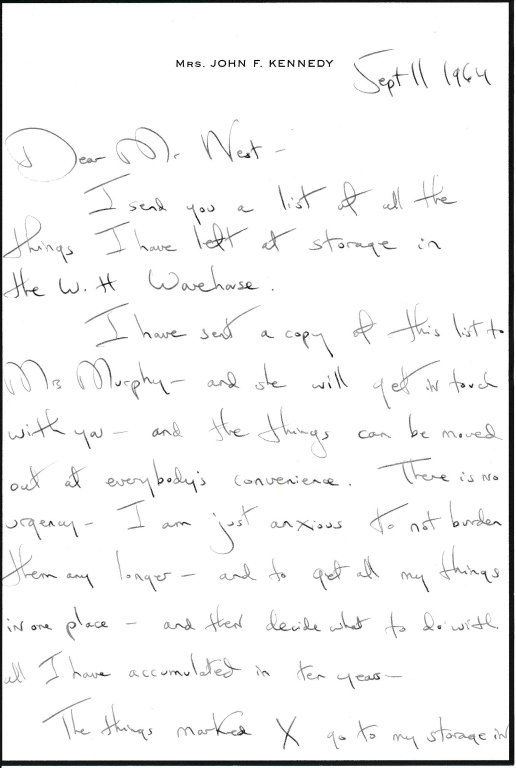 MRS. JOHN F. KENNEDY
Sept 11 1964
Dear Mr West -
I send you a list of all the
things I have left at storage in
the W. H Warehouse.
I have sent a copy of this list to
Mrs Murphy - and she will get in touch
with you - and the things can be moved
out at everybody's convenience. There is no
urgency - I am just anxious to not burden
them any longer - and to get all my things
in one place - and then decide what to do with
all I have accumulated in ten years -
The things marked X go to my storage in